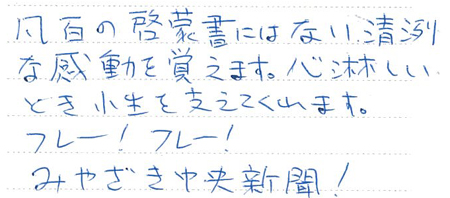 凡百の啓蒙書にはない清冽
な感動を覚えます。心淋しい
とき小生を支えてくれます。
フレー！フレー！
みやざき中央新聞！